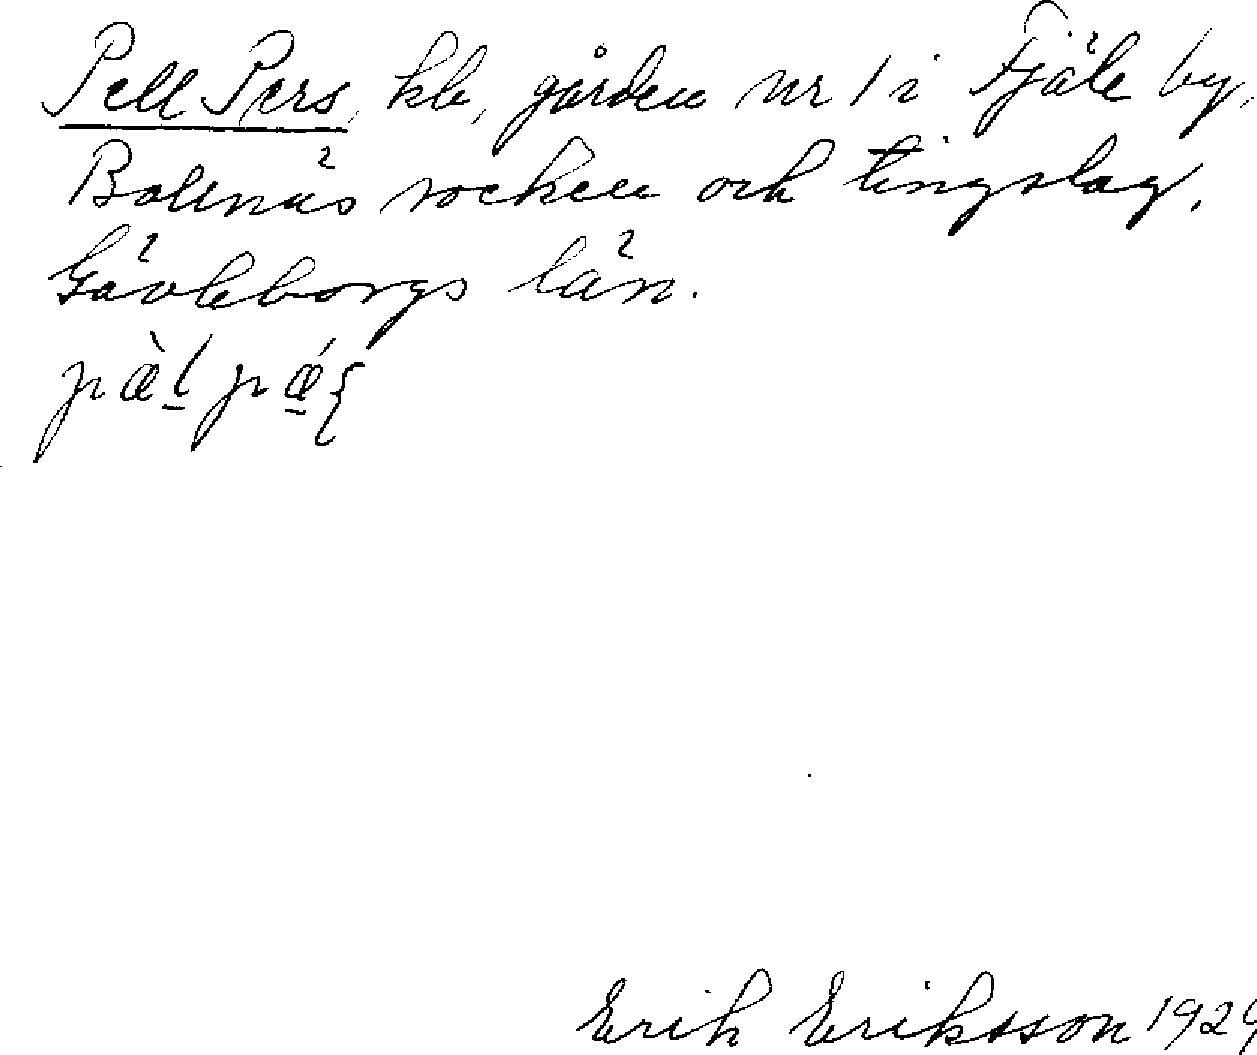 Pell Pers, hb, gården nr 1 i Fjäle by,
Bollnäs socken och tingslag,
Gävleborgs län.
pæ̀l̠ pǽ̠ʂ
Erik Eriksson 1929